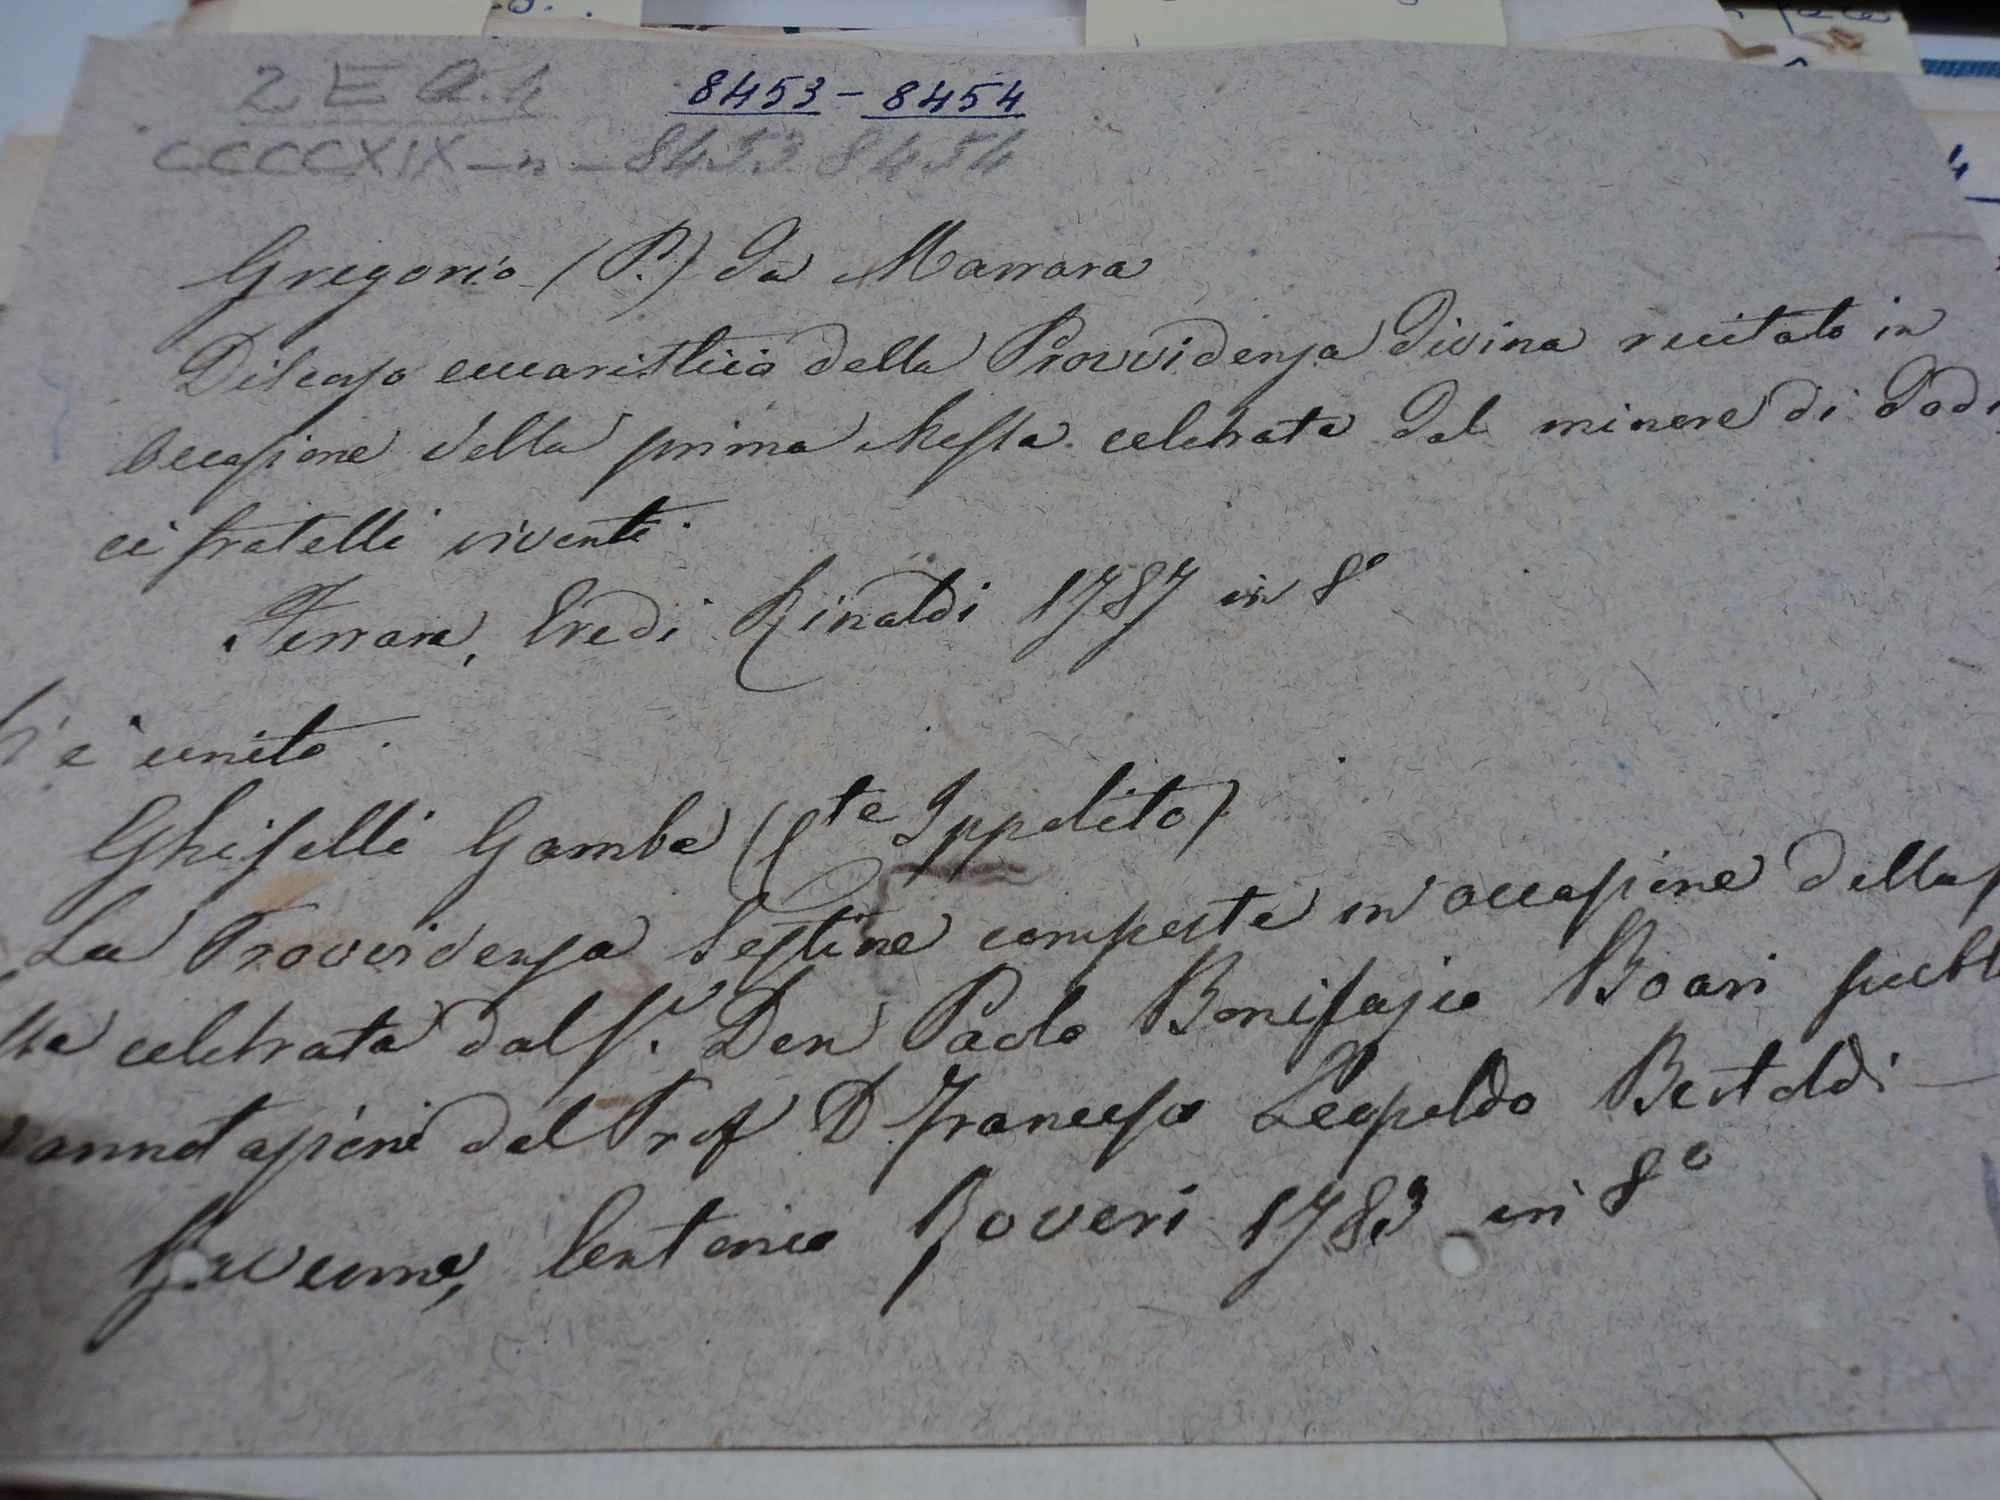 2 E Q. 4 8453 - 8454
CCCCXIX - n - 8453 8454
Gregorio (P.) da Marrara
Discorso eucaristico della Provvidenza divina recitato in
occasione della prima Messa celebrata dal minore di dodi
ci fratelli viventi.
Ferrara, Eredi Rinaldi 1787 in 8°
V'è unito.
Ghiselli Gamba (Cte Ippolito)
La Provvidenza Sestine composte in occasione della
ssa celebrata dal Sr. Don Paolo Bonifazio Boari pubbl
annotazioni dal Prof D. Francesco Leopoldo Bertoldi -
Ravenna, Antonio Roveri 1783 in 8°